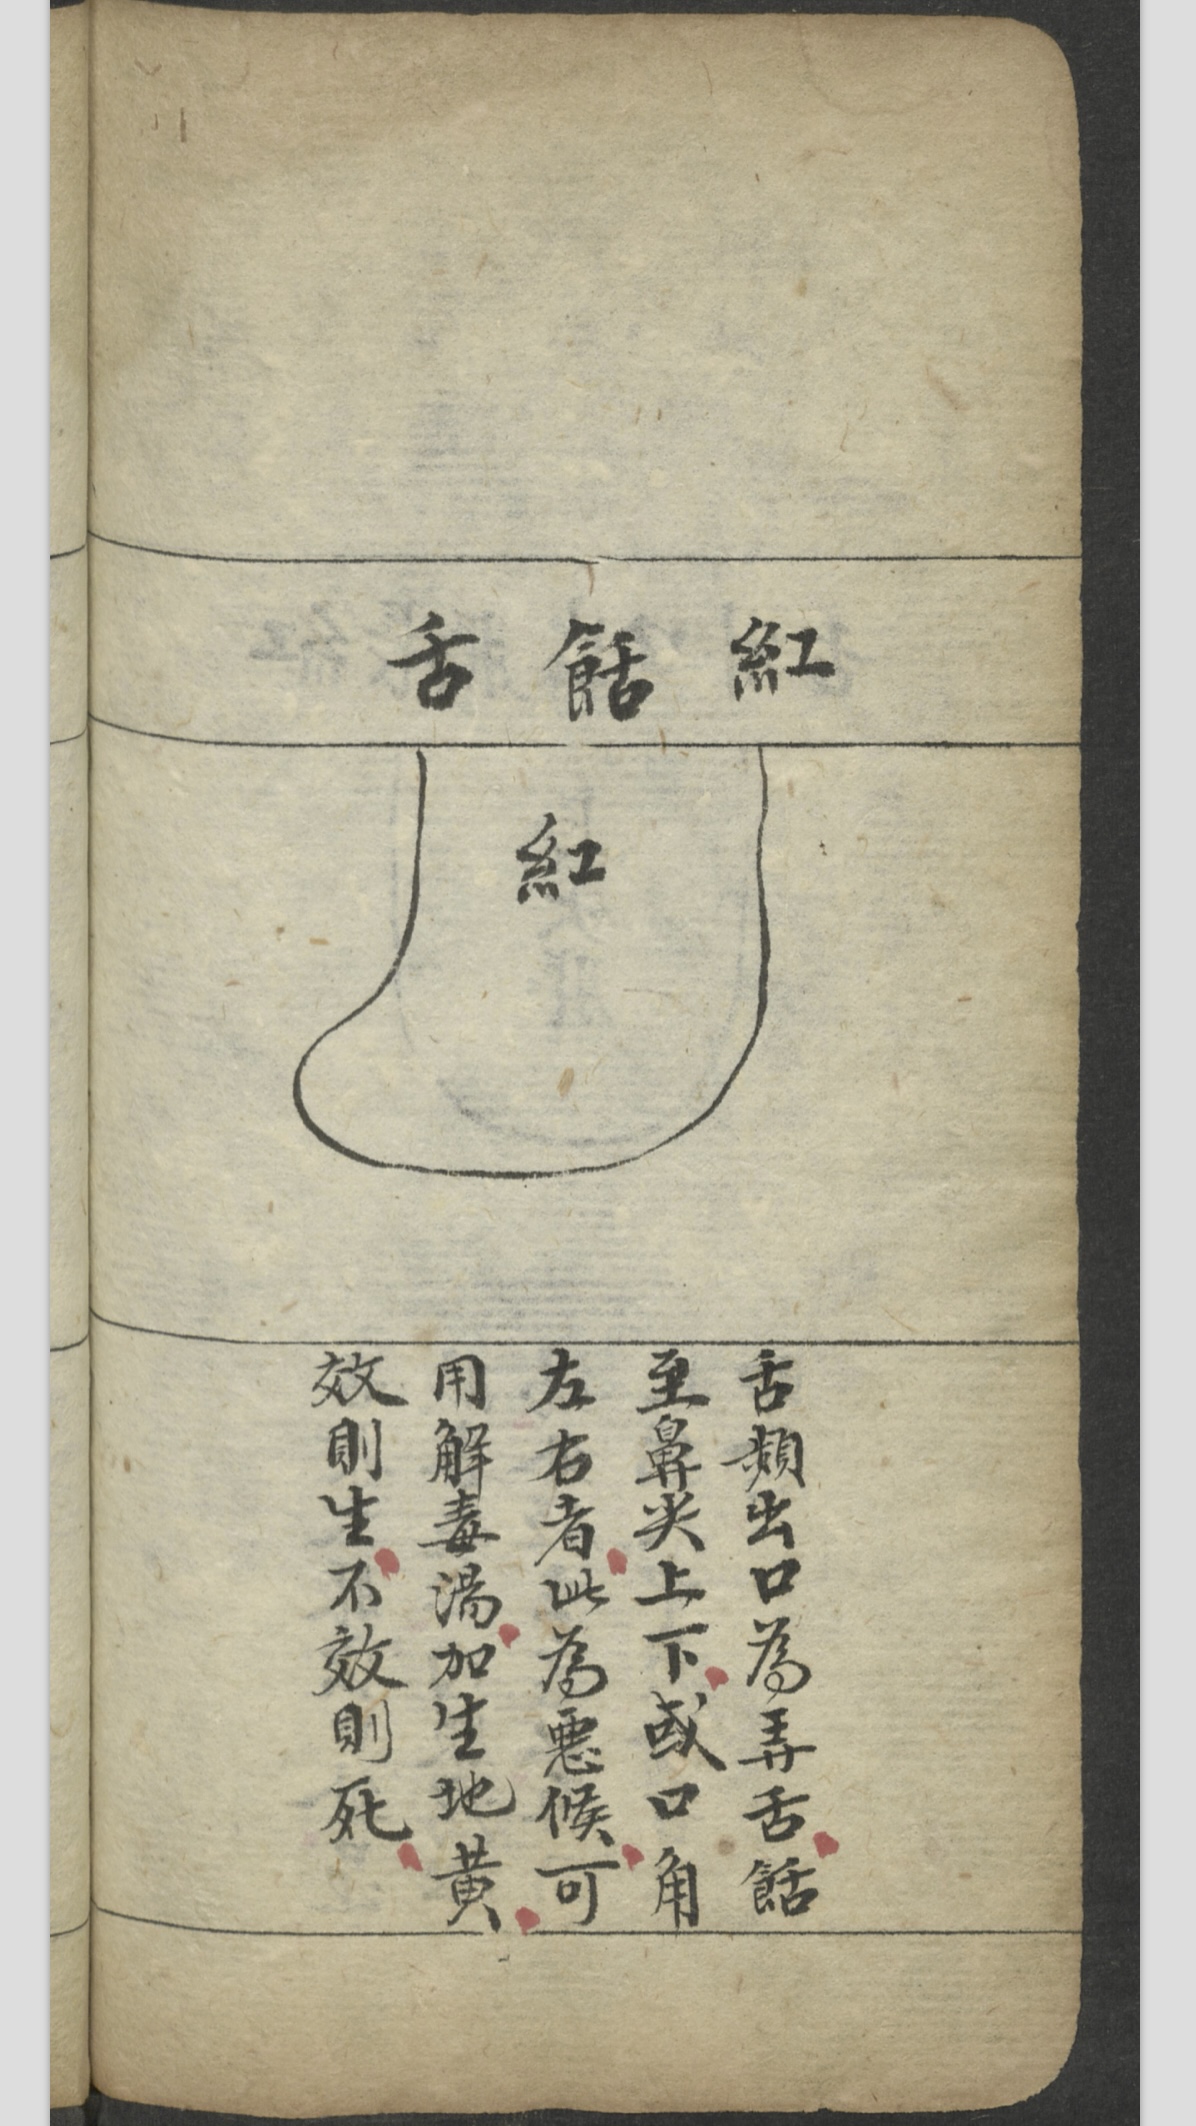 紅餂舌
紅
舌頻出口為弄舌餂
至鼻尖上下或口角
左右者此為惡候可
用解毒湯加生地黃
效則生不效則死